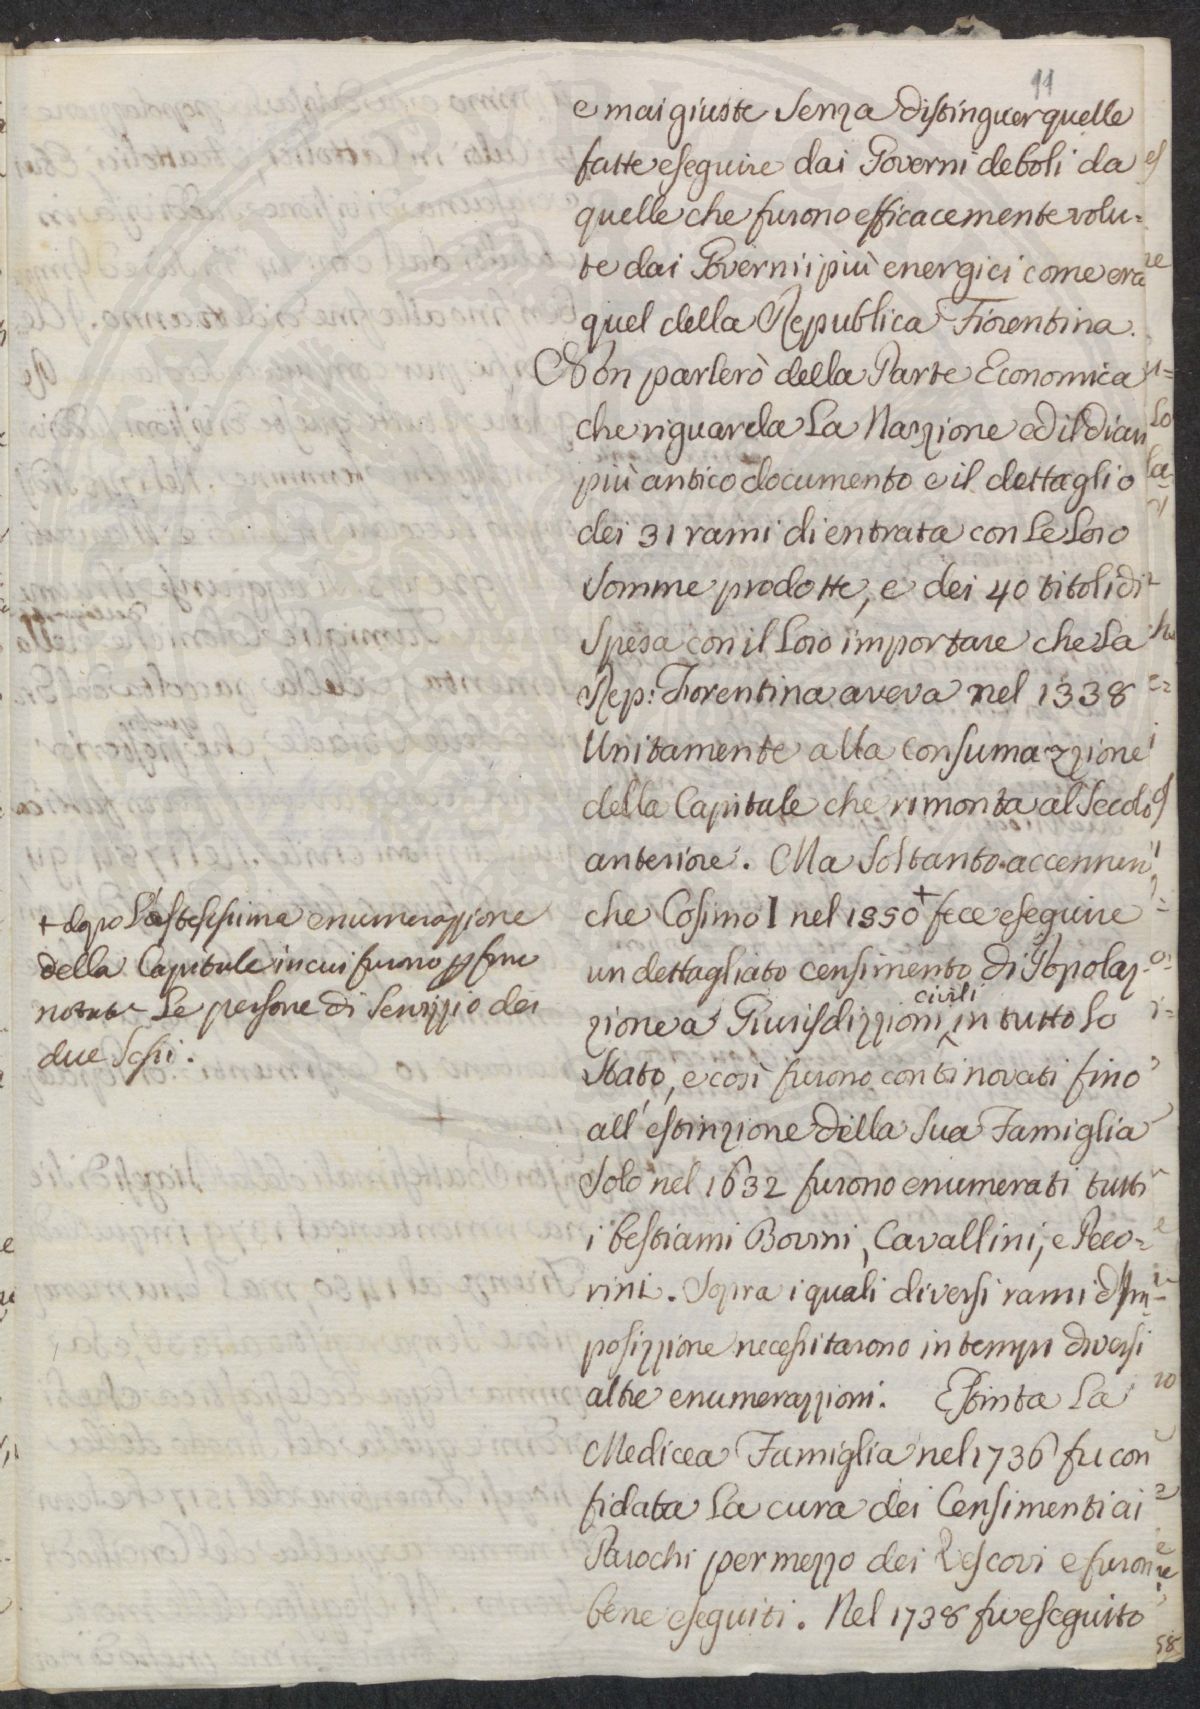 11
e mai giuste senza distinguer quelle
fatte eseguire dai Governi deboli da
quelle che furono efficacemente volu=
te dai Governi i più energici come era
quel della Republica Fiorentina.
Non parlerò della Parte Economica
che riguarda la Nazzione ed il di cui
più antico documento e il dettaglio
dei 31 rami di entrata con le loro
somme prodotte, e dei 40 titoli di
spesa con il loro importare che la
Rep: Fiorentina aveva nel 1338
Unitamente alla Consumazzione
della Capitale che rimonta al secolo
anteriore. Ma soltanto accennerò
che Cosimo I nel 1550 + fece eseguire
un dettagliato censimento di Popolaz-
zione a Giurisdizzioni civili in tutto lo
Stato, e così furono continovati fino
all'estinzione della sua Famiglia
Solo nel 1632 furono enumerati tutti
i bestiami Bovini, Cavallini, e Peco=
rini. Sopra i quali diversi rami d'Im=
posizzione necessitarono in tempi diversi
altre enumerazzioni. Estinta la
Medicea Famiglia nel 1736 fu con
fidata la cura dei Censimenti ai
Parochi per mezzo dei Vescovi e furon
bene eseguiti. Nel 1738 fu eseguito
+ dopo l'estesissima enumerazzione
della Capitale in cui furono
notate le persone di Servizzio dei
due Sessi.